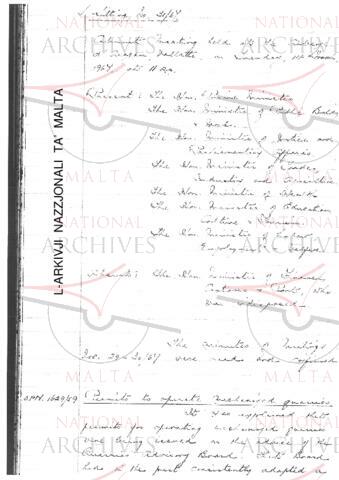 Sitting No. 31/67
Cabinet Meeting held at the
on
1967, at 11 a.m.
Present: The Hon. Prime Minister
The Hon. Minister of Public Building
& Works
The Hon. Minister of Justice and
Parliamentary Affairs
The Hon. Minister of Trade,
Industry and Agriculture
The Hon. Minister of Health
The Hon. Minister of Education
Culture & Tourism
The Hon. Minister of Labour
Employment & Welfare
Absent: The Hon. Minister of Finance,
Customs & Ports, who
was indisposed.
The minutes of meetings
Nos. 29 & 30/67 were read and signed
OPM. 1629/59 Permits to operate mechanised quarries
It was explained that
permits for operating mechanised quarries
were being issued on the advice of the
Quarries Advisory Board. This Board
had in the past consistently adopted a
L-ARKIVJI NAZZJONALI TA' MALTA
NATIONAL
ARCHIVES
MALTA